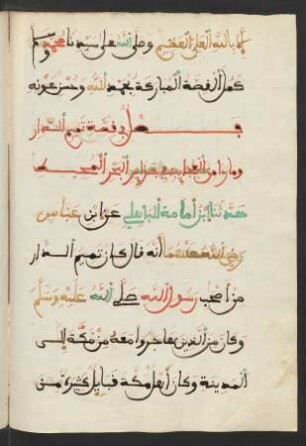 إلا بالله العلي العظيم وصلى الله على سيدنا محمد
كمل القصة المباركة بحمد الله وحسن عونه
فصل في قصة تميم الدار
وما رأى من العجايب في جزاير البحر المحيط
حدثنا ابن أمامة الباهلي عن ابن عباس
رضي الله عنهما أنه قال كان تميم الدار
من أصحاب رسول الله صلى الله عليه وسلم
وكان من الذين هاجروا معه من مكة إلى
المدينة وكان أهل مكة قبايل كثيرة من